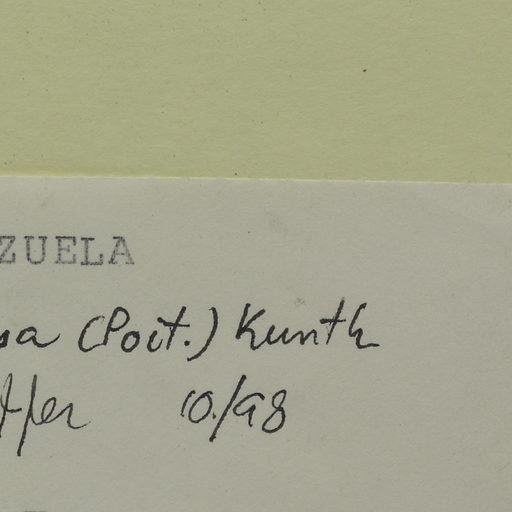 ZUELA
sa (Poit.) Kunth
10/98